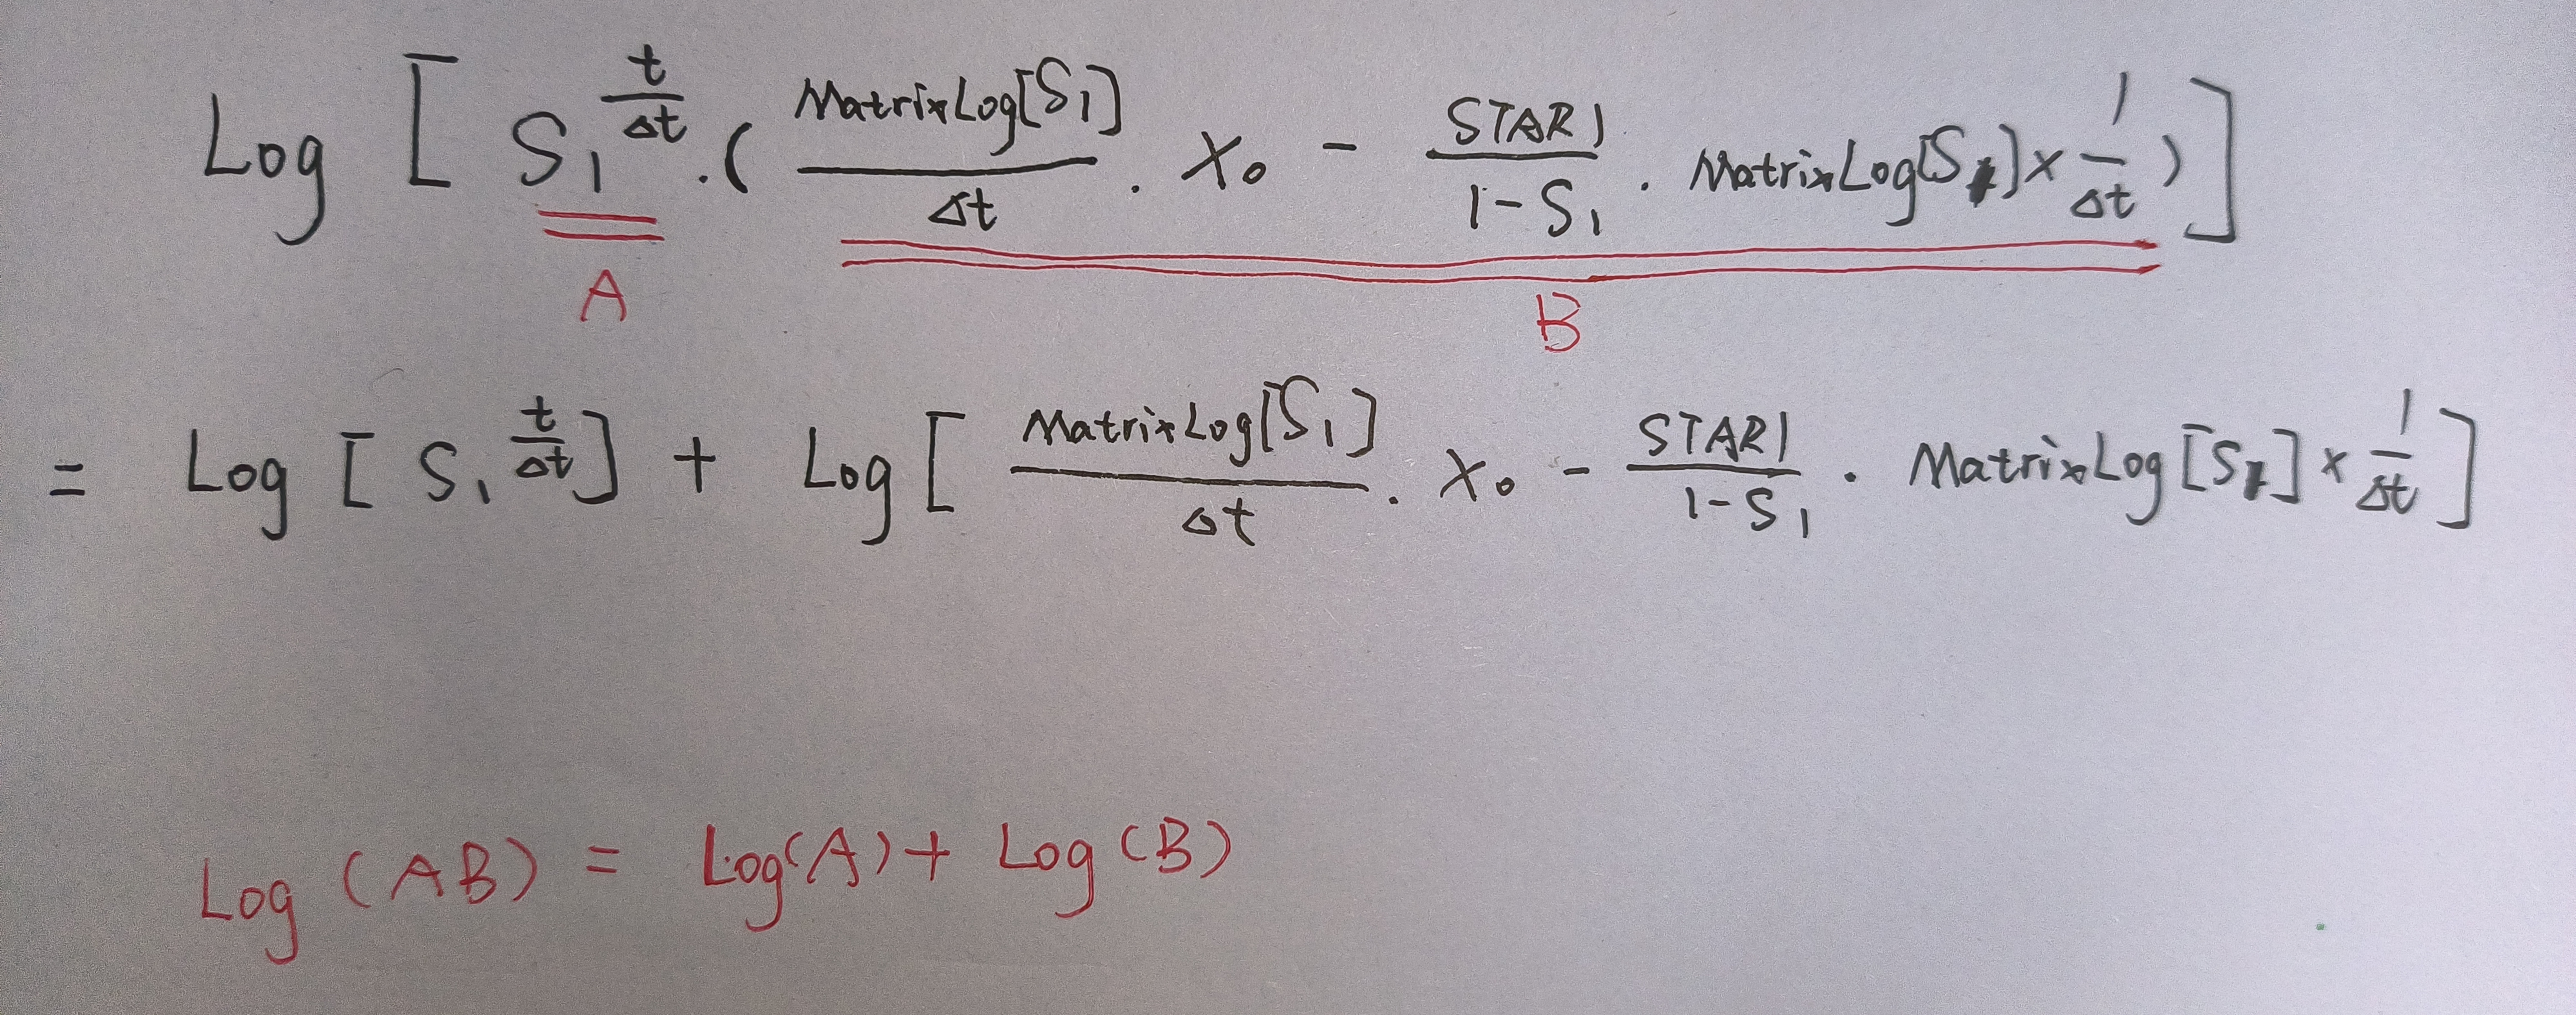 Log [ S₁^(t/Δt) · ( MatrixLog[S₁]/Δt · X₀ - STAR1/(1-S₁) · MatrixLog[S₁] × 1/Δt ) ]
A B
= Log [ S₁^(t/Δt) ] + Log [ MatrixLog[S₁]/Δt · X₀ - STAR1/(1-S₁) · MatrixLog[S₁] × 1/Δt ]
Log (AB) = Log(A) + Log (B)